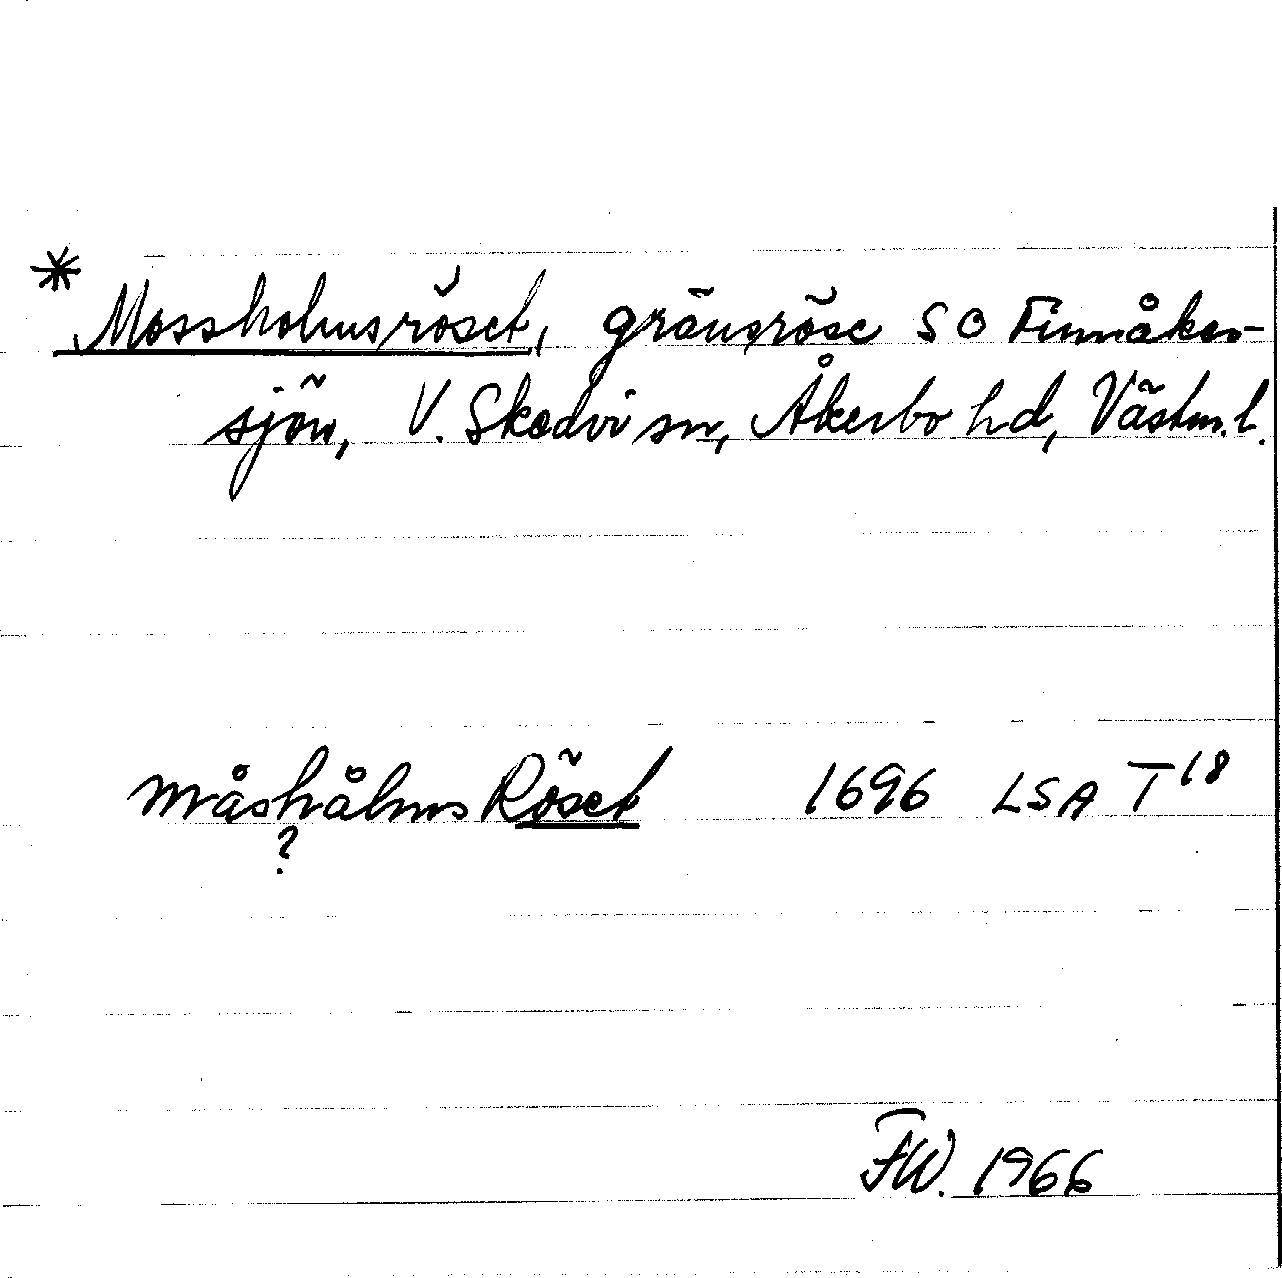 * Mossholmsröset, gränsröse SO Finnåker-
sjön, V. Skedvi sn, Åkerbo hd, Västm. l.
måshålms Röset 1696 LSA T 18
?
FW. 1966